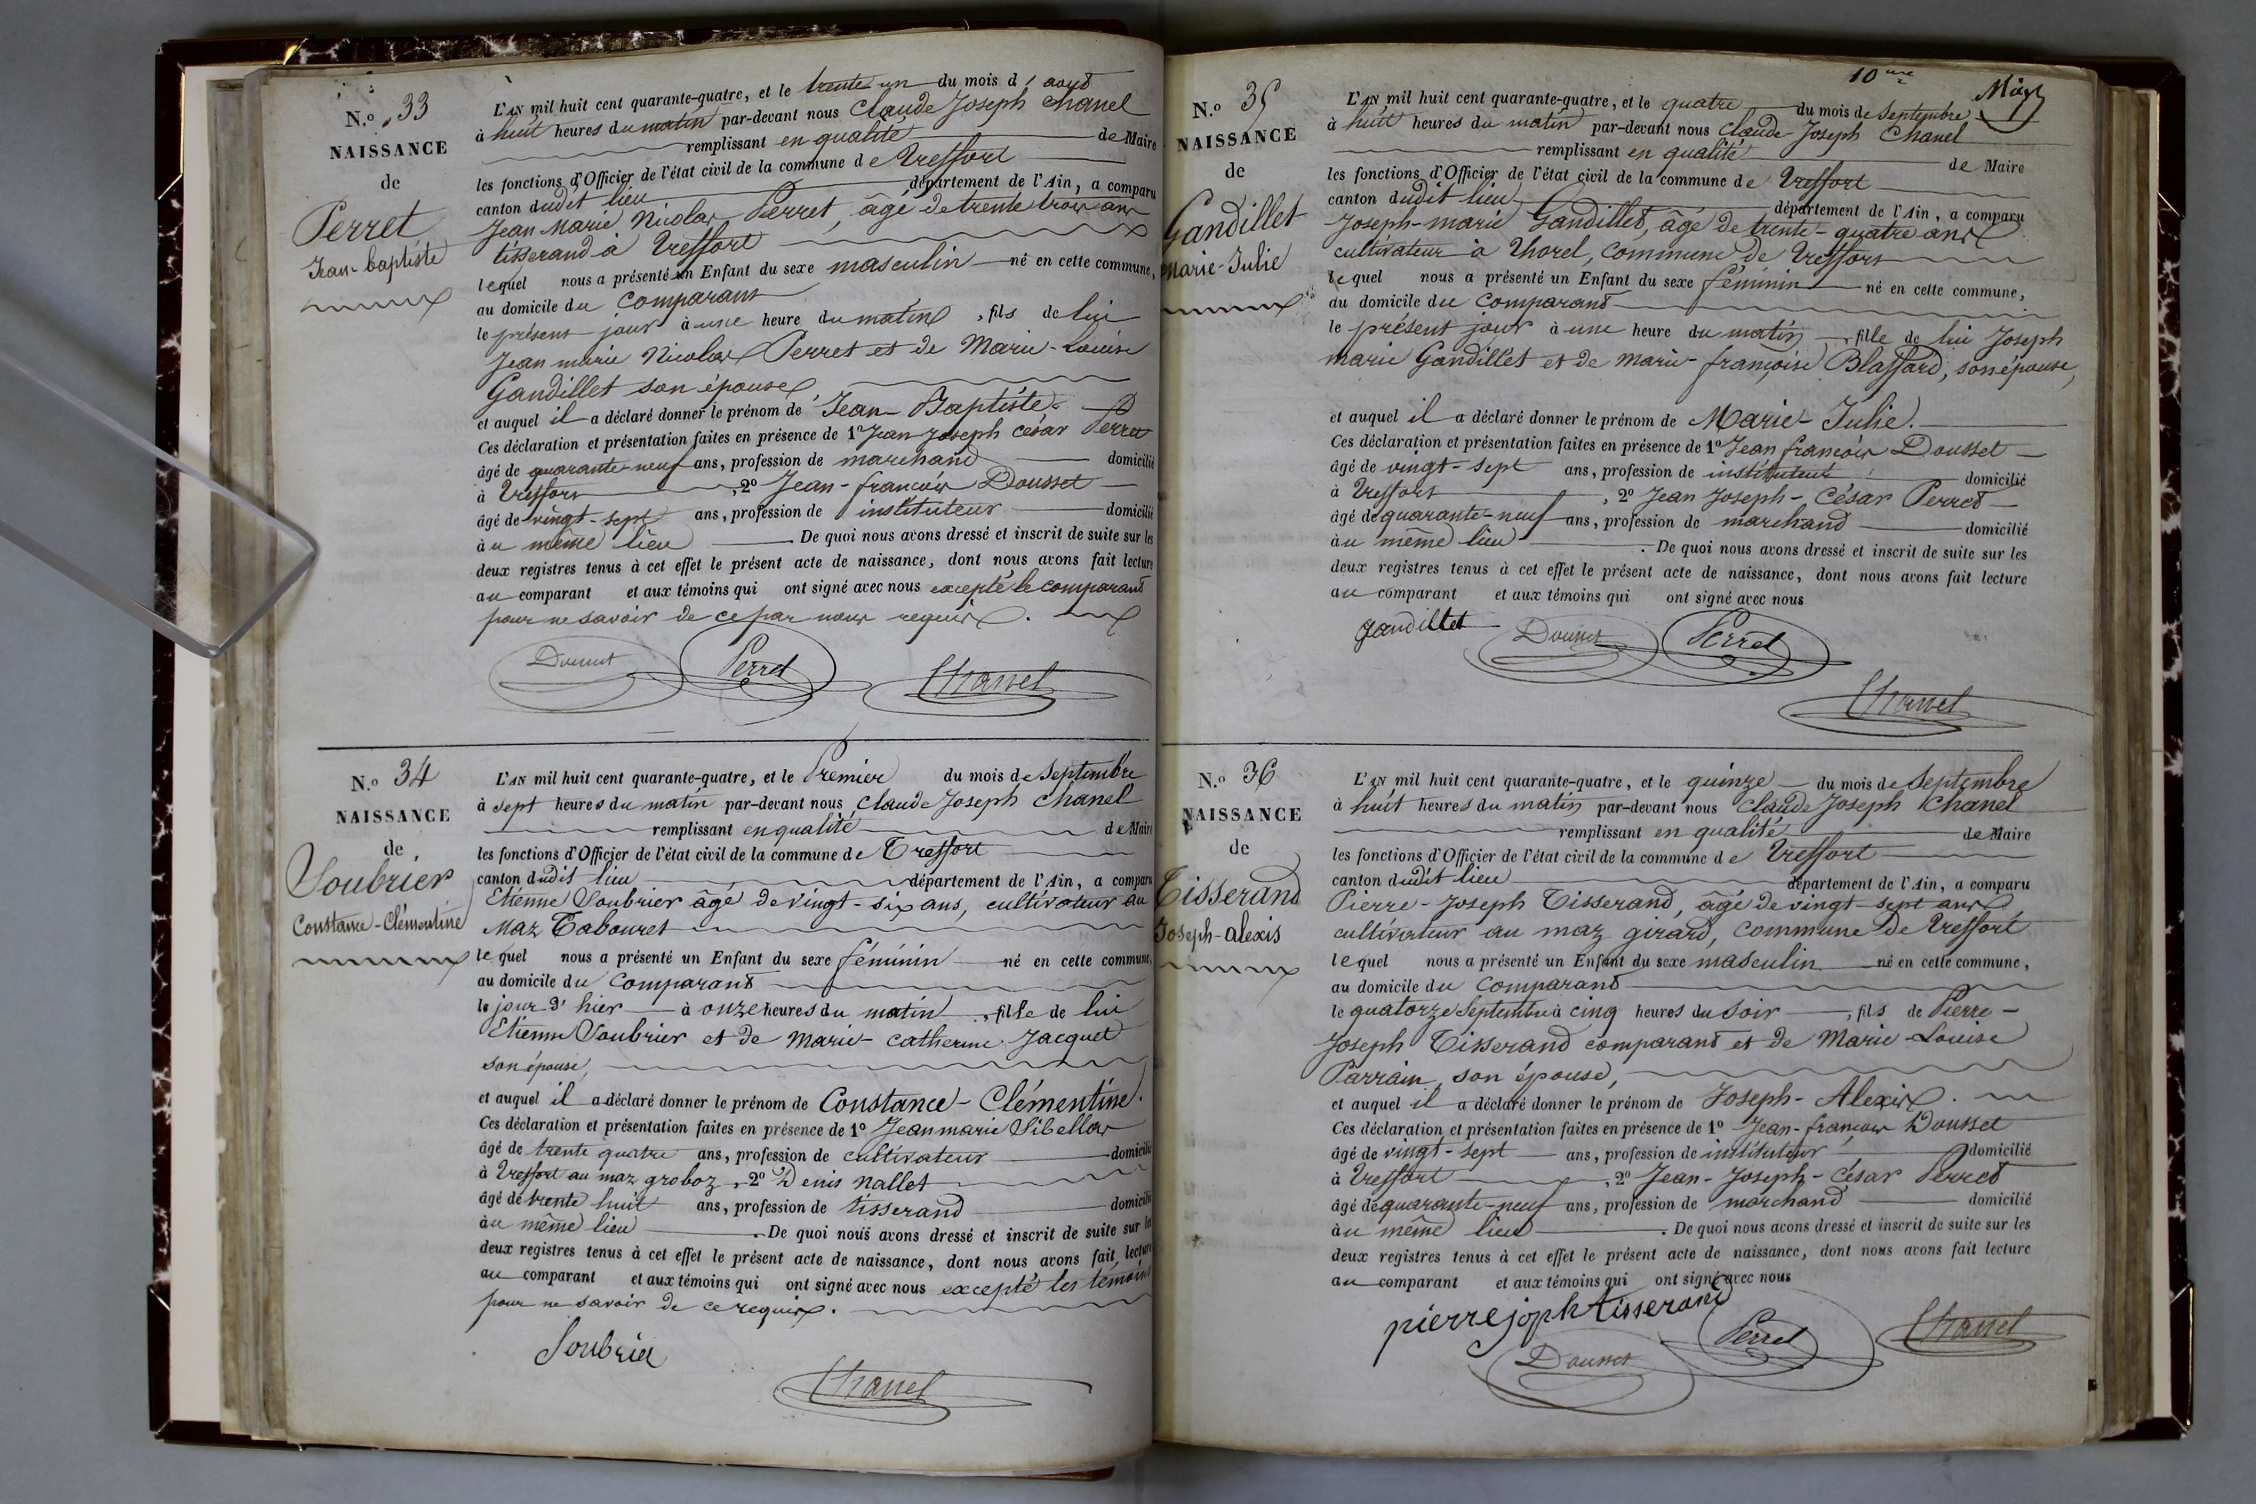 N.o 33
NAISSANCE
de
Perret
Jean-baptiste
L'AN mil huit cent quarante-quatre, et le trente un du mois d'aout
à huit heures du matin par-devant nous Claude Joseph Chanel
remplissant en qualité de Maire
les fonctions d'Officier de l'état civil de la commune de Treffort
canton dudit lieu département de l'Ain, a comparu
Jean Marie Nicolas Perret, âgé de trente trois ans
tisserand à Treffort
lequel nous a présenté un Enfant du sexe masculin né en cette commune,
au domicile du comparant
le présent jour à une heure du matin, fils de lui
Jean marie Nicolas Perret et de Marie-Louise
Gandillet son épouse
et auquel il a déclaré donner le prénom de Jean-Baptiste.
Ces déclaration et présentation faites en présence de 1o Jean Joseph César Perret
âgé de quarante-neuf ans, profession de marchand domicilié
à Treffort, 2o Jean-francois Dousset
âgé de vingt-sept ans, profession de instituteur domicilié
au même lieu. De quoi nous avons dressé et inscrit de suite sur les
deux registres tenus à cet effet le présent acte de naissance, dont nous avons fait lecture
au comparant et aux témoins qui ont signé avec nous excepté le comparant
pour ne savoir de ce par nous requis.
Dousset Perret Chanel
N.o 34
NAISSANCE
de
Soubrier
Constance-Clémentine
L'AN mil huit cent quarante-quatre, et le Premier du mois de Septembre
à sept heures du matin par-devant nous Claude Joseph Chanel
remplissant en qualité de Maire
les fonctions d'Officier de l'état civil de la commune de Treffort
canton dudit lieu département de l'Ain, a comparu
Etienne Soubrier âgé de vingt-six ans, cultivateur au
Maz Tabouret
lequel nous a présenté un Enfant du sexe féminin né en cette commune,
au domicile du comparant
le jour d'hier à onze heures du matin, fille de lui
Etienne Soubrier et de Marie-catherine Jacquet
son épouse,
et auquel il a déclaré donner le prénom de Constance-Clémentine.
Ces déclaration et présentation faites en présence de 1o Jean marie Sibellas
âgé de trente quatre ans, profession de cultivateur domicilié
à Treffort au maz groboz, 2o Denis Nallet
âgé de trente huit ans, profession de tisserand domicilié
au même lieu. De quoi nous avons dressé et inscrit de suite sur les
deux registres tenus à cet effet le présent acte de naissance, dont nous avons fait lecture
au comparant et aux témoins qui ont signé avec nous excepté les témoins
pour ne savoir de ce requis.
Soubrier
Chanel
10
N.o 35
NAISSANCE
de
Gandillet
Marie-Julie
L'AN mil huit cent quarante-quatre, et le quatre du mois de Septembre
à huit heures du matin par-devant nous Claude-Joseph Chanel
remplissant en qualité de Maire
les fonctions d'Officier de l'état civil de la commune de Treffort
canton dudit lieu département de l'Ain, a comparu
Joseph-marie Gandillet, âgé de trente-quatre ans
cultivateur à Thorel, commune de Treffort
lequel nous a présenté un Enfant du sexe féminin né en cette commune,
au domicile du comparant
le présent jour à une heure du matin, fille de lui Joseph
marie Gandillet et de marie-françoise Blassard, son épouse,
et auquel il a déclaré donner le prénom de Marie-Julie.
Ces déclaration et présentation faites en présence de 1o Jean francois Dousset
âgé de vingt-sept ans, profession de instituteur domicilié
à Treffort, 2o Jean Joseph-César Perret
âgé de quarante-neuf ans, profession de marchand domicilié
au même lieu. De quoi nous avons dressé et inscrit de suite sur les
deux registres tenus à cet effet le présent acte de naissance, dont nous avons fait lecture
au comparant et aux témoins qui ont signé avec nous
gandillet Dousset Perret
Chanel
N.o 36
NAISSANCE
de
Tisserand
Joseph-alexis
L'AN mil huit cent quarante-quatre, et le quinze du mois de Septembre
à huit heures du matin par-devant nous Claude Joseph Chanel
remplissant en qualité de Maire
les fonctions d'Officier de l'état civil de la commune de Treffort
canton dudit lieu département de l'Ain, a comparu
Pierre-Joseph Tisserand, âgé de vingt-sept ans
cultivateur au maz girard, commune de Treffort
lequel nous a présenté un Enfant du sexe masculin né en cette commune,
au domicile du comparant
le quatorze Septembre à cinq heures du soir, fils de Pierre-
Joseph Tisserand comparant et de Marie-Louise
Parrain, son épouse,
et auquel il a déclaré donner le prénom de Joseph-Alexis.
Ces déclaration et présentation faites en présence de 1o Jean-francois Dousset
âgé de vingt-sept ans, profession de instituteur domicilié
à Treffort, 2o Jean-Joseph-César Perret
âgé de quarante-neuf ans, profession de marchand domicilié
au même lieu. De quoi nous avons dressé et inscrit de suite sur les
deux registres tenus à cet effet le présent acte de naissance, dont nous avons fait lecture
au comparant et aux témoins qui ont signé avec nous
pierre joph tisserand
Dousset Perret Chanel